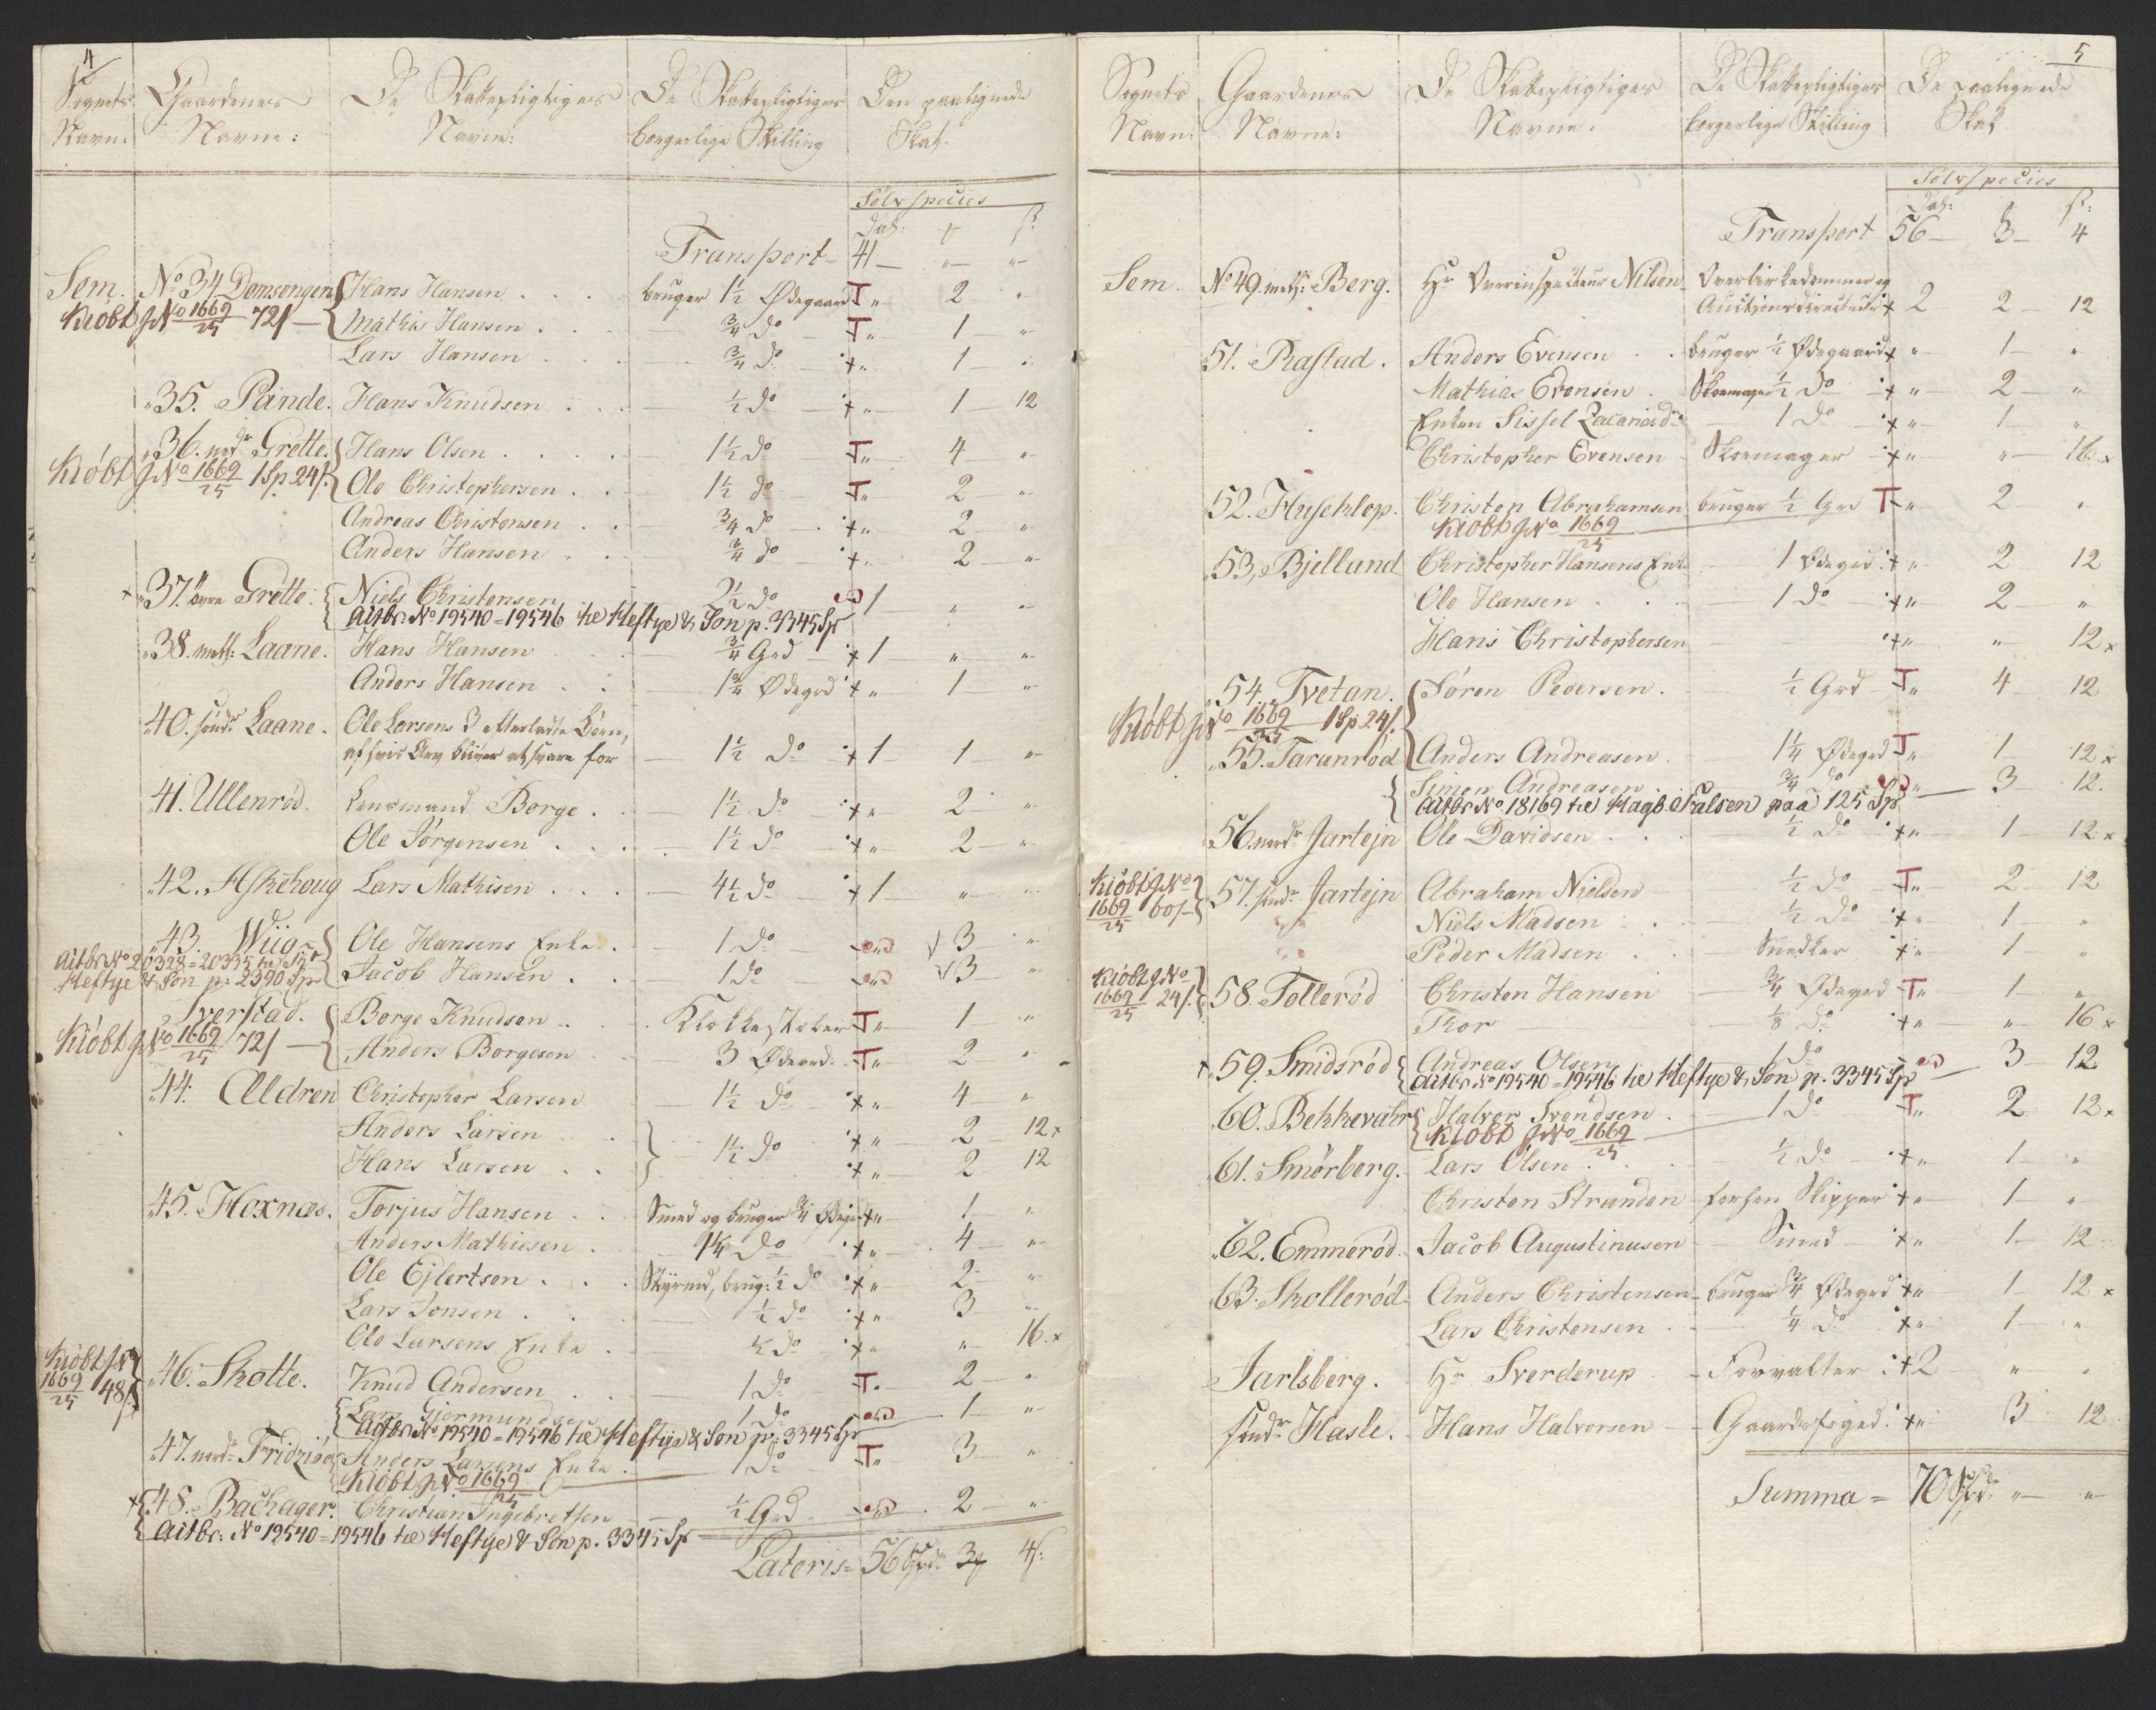 4
Sognets Gaardenes De Skattepligtiges De Skattepligtiges Den paalignede
Navn: Navne: Navne: borgerlige Stilling Skat.
Sølvspecies
Dal: ß
Transport – 41 – „ – „
Sem. No 34 Domsengen Hans Hansen bruger 1½ Ødegaard T „ 2 „
Kiøbt gNo 1669/25 72/– Mathis Hansen ¾ do T „ 1 „
Lars Hansen ¾ do + „ 1 „
„35. Pånde. Hans Knudsen ½ do + „ 1 – 12
„36. nedr Grette. Hans Olsen 1½ do T „ 4 „
Kiøbt gNo 1669/25 1 Sp 24/. Ole Christophersen 1½ do T „ 2 „
Andreas Christensen ¾ do + „ 2 „
Anders Hansen ¾ do + „ 2 „
+ „37. øvre Grette. Niels Christensen 2½ do 1 „ „
Aitbr. No 19540=19546 til Heftye & Søn p. 3345 Sp
„38. mels: Laane. Hans Hansen ¾ Grd + 1 „ „
Anders Hansen 1¾ Ødegrd + „ 1 „
„40. søndr Laane. Ole Larsens 3 efterladte Børn,
af hvis Arv bliver at svare for 1½ Do + 1 1 „
„41. Ullenrød. Lensmand Borge 1½ Do + „ 2 „
Ole Jørgensen 1½ Do + „ 2 „
„42. Askehoug Lars Mathisen 4½ Do + 1 „ „
„43. Wiig Ole Hansens Enke 1 Do „ 3 „
Aitbr No 20328=20335 til
Heftye & Søn p. 2390 Sp Jacob Hansen 1 do „ 3 „
„ Sverstad. Borge Knudsen Klokkestøber T „ 1 „
Kiøbt gNo 1669/25 72/– Anders Borgesen 3 Ødegrd T „ 2 „
„44. Aldren Christopher Larsen 1½ Do + „ 4 „
Anders Larsen 1½ Do + „ 2 12 ×
Hans Larsen + „ 2 12
„45. Hexnæs. Torjus Hansen Smed og bruger ¾ Ødegr + „ 1 „
Anders Mathiesen 1¼ Do + „ 4 „
Ole Ejlertsen Styrmd, brug: ½ do + „ 2 „
Lars Jonsen ½ do + „ 3 „
Ole Larsens Enke ½ do + „ „ 16. ×
Kiøbt gNo 1669/25 48/ „46. Skotte. Knud Andersen 1 Do T „ 2 „
Lars Gjermundsen 1 Do „ 1 „
Aitbr No 19540=19546 til Heftye & Søn p. 3345 Sp
„47. nordr Fridziøe Anders Larsens Enke 1 Do T „ 3 „
Kiøbt gNo 1669/25
+ „48. Bachager. Christian Ingebretsen ½ Grd „ 2 „
Aitbr: No 19540=19546 til Heftye & Søn p. 3345 Sp
Lateris= 56 Spd. 3 4 ß:
5
Sognets Gaardenes De Skattepligtiges De Skattepligtiges De paalignede
Navn: Navne: Navne: borgerlige Stilling Skat
Sølvspecies
Dal: ß:
Transport 56 – 3 – 4
Sem. No 49. mels: Berg. Hr Overinspecteur Nilsen Overbirkedommer og
Auctionsdirecteur + 2 2 12
„51. Rastad. Anders Evensen bruger ½ Ødegaard + „ 1 „
Mathias Evensen Skoemager ½ Do + „ 2 „
Enken Sissel Zacariasdr 1 Do + „ 1 „
Christopher Evensen Skoemager + „ „ 16 ×
„52. Huseklep. Christen Abrahamsen bruger ½ Grd T „ 2 „
Kiøbt gNo 1669/25
„53, Bjelland Christopher Hansens Enke 1 Ødegrd + „ 2 12
Ole Hansen 1 Do + „ 2 „
Hans Christophersen + „ „ 12 ×
„54. Tvetan. Søren Pedersen ½ Grd T „ 4 12
Kiøbt gNo 1669/25 1 Sp 24/.
„55. Taranrød Anders Andreasen 1¼ Ødegrd T „ 1 12 ×
Simon Andreasen ¾ do „ 3 12.
Aitbr No 18169 til Hagb. Falsen paa 125 Sp
„56. nordr Jartejn Ole Davidsen ½ Do + „ 1 12 ×
Kiøbt gNo 1669/25 60/– „57. søndr Jartejn Abraham Nielsen ½ do T „ 2 12
Niels Madsen ½ Do + „ 1 „
Peder Madsen Snedker + „ 1 „
Kiøbt gNo 1669/25 24/. „58. Tollerød Christen Hansen ¾ Ødegrd T „ 1 „
Thor ⅛ Do + „ „ 16 ×
+ „59. Smidsrød Andreas Olsen 1 Do „ 3 12
Aitbr No 19540=19546 til Heftye & Søn p. 3345 Sp
„60. Bekkevahr Halvor Svendsen 1 Do T „ 2 12 ×
Kiøbt gNo 1669/25
„61. Smørberg. Lars Olsen ½ Do + „ 1 „
Christen Stranden forhen Skipper + „ 1 „
„62. Emmerød. Jacob Augustinusen Smed + „ 1 12
„63. Skollerød. Anders Christensen bruger ¾ Ødegrd + „ 1 12 ×
Lars Christensen ¼ Do + „ 1 „
Jarlsberg. Hr Sverderup Forvalter + 2 „ „
søndr Hasle. Hans Halvorsen Gaardsfoged + „ 3 12
Summa = 70 Spd. „ „